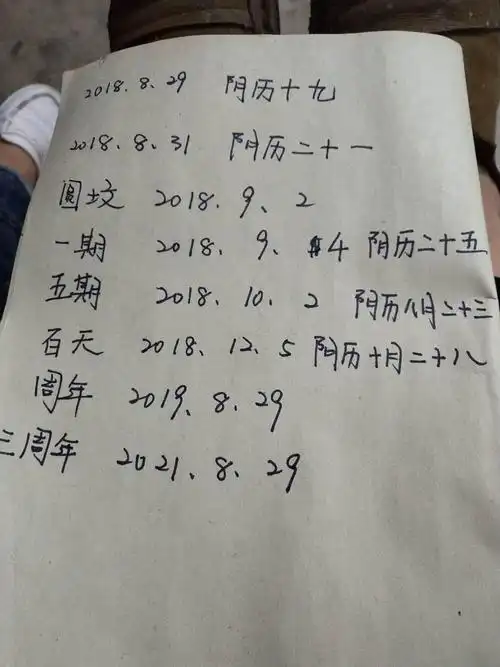 2018.8.29 阴历十九
2018.8.31 阴历二十一
圆坟 2018.9、2
一期 2018.9、4 阴历二十五
五期 2018.10.2 阴历八月二十三
百天 2018、12、5 阴历十月二十八
周年 2019、8、29
三周年 2021、8、29